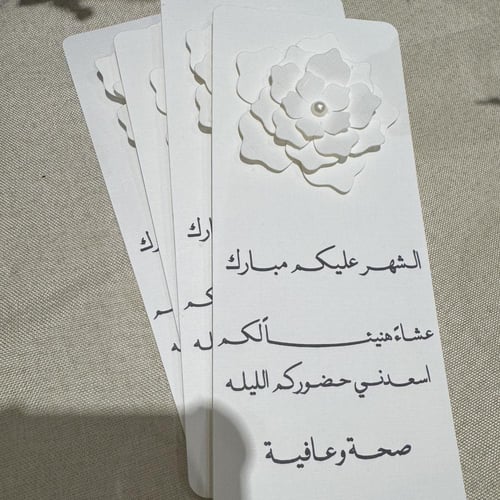 الشهر عليكم مبارك
عشاءً هنيئــاً لكم
اسعدني حضوركم الليله
صحة وعافية